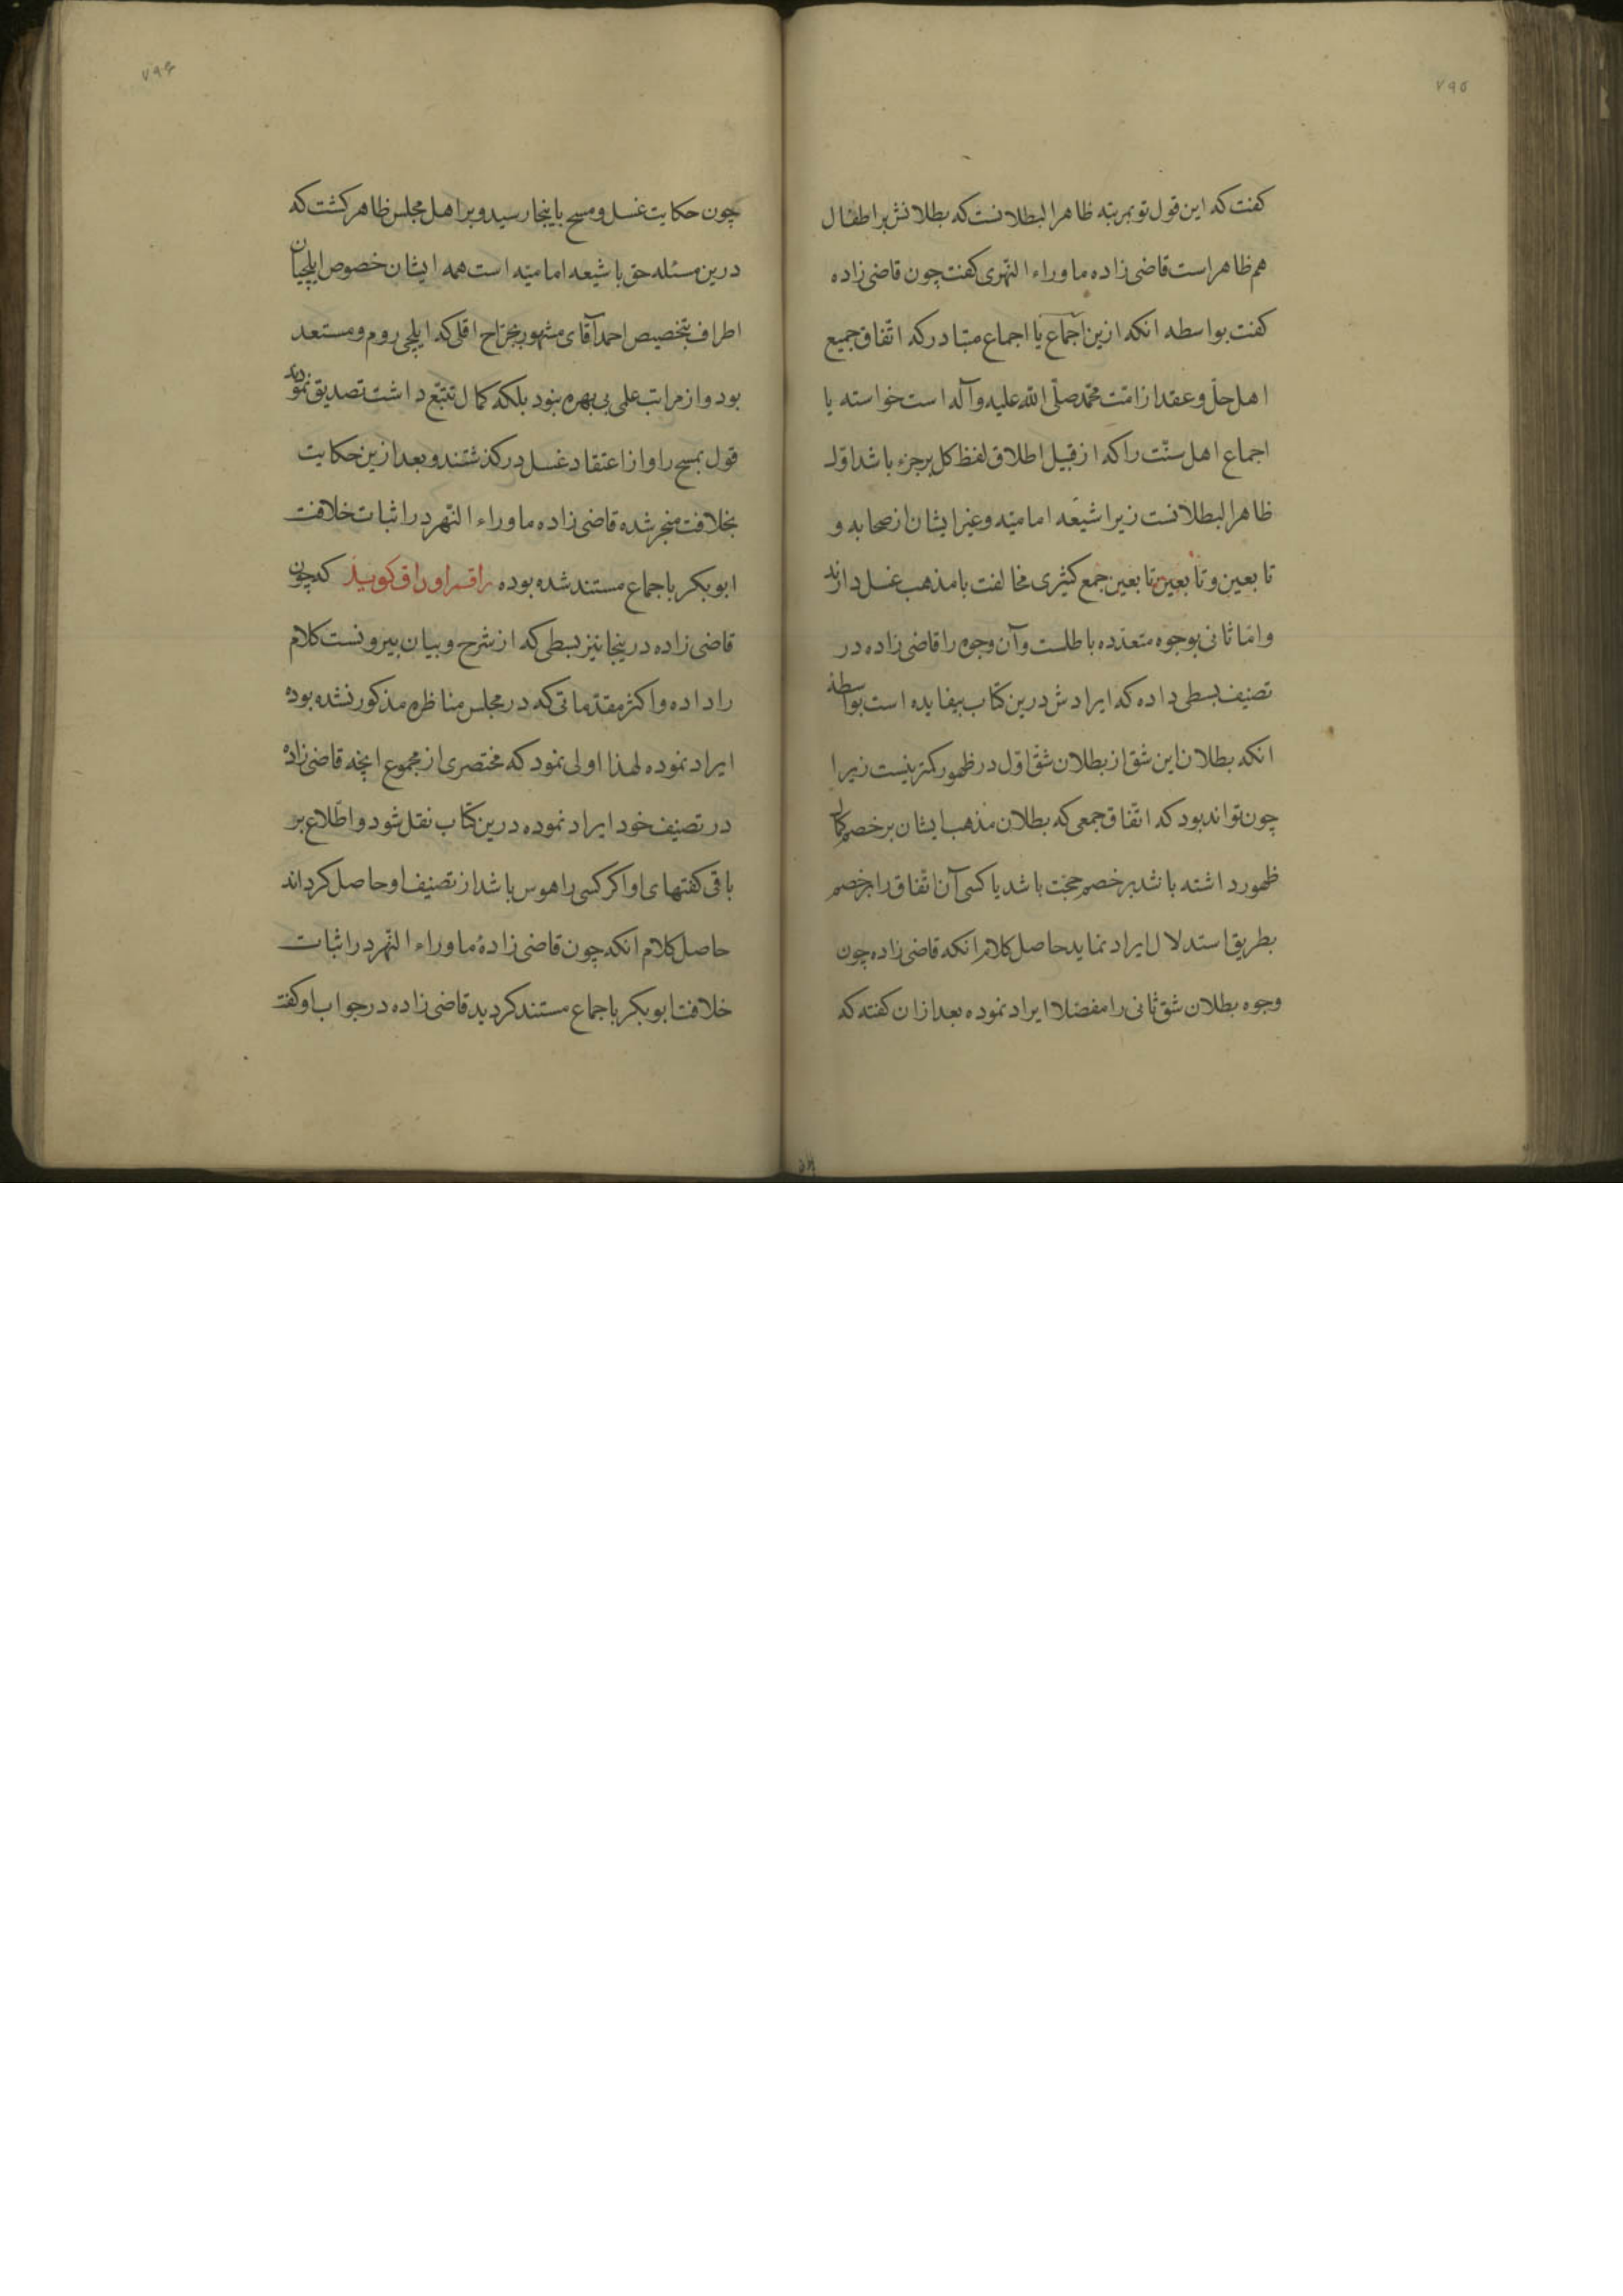 ۷۹۵
کفت که این قول تو بمرتبه ظاهر البطلانست که بطلانش بر اطفال
هم ظاهر است قاضی زاده ماوراء النّهری کفت چون قاضی زاده
کفت بواسطه انکه ازین اجماع یا اجماع متبادر که اتّفاق جمیع
اهل حلّ و عقد از امّت محمّد صلّی الله علیه و آله است خواسته یا
اجماع اهل سنّت را که از قبیل اطلاق لفظ کل بر جزء باشد اوّل
ظاهر البطلانست زیرا شیعه امامیّه و غیر ایشان از صحابه و
تابعین و تابعین تابعین جمع کثیری مخالفت با مذهب غسل دارند
و امّا ثانی بوجوه متعدّده باطلست و آن وجوه را قاضی زاده در
تصنیف بسطی داده که ایرادش درین کتاب بیفایده است بواسطهٔ
انکه بطلان این شق از بطلان شقّ اوّل در ظهور کمتر نیست زیرا
چون تواند بود که اتّفاق جمعی که بطلان مذهب ایشان بر خصم کمال
ظهور داشته باشد بر خصم حجّت باشد یا کسی آن اتّفاق را بر خصم
بطریق استدلال ایراد نماید حاصل کلام انکه قاضی زاده چون
وجوه بطلان شق ثانی را مفصّلا ایراد نموده بعد ازان کفته که
۷۹۶
چون حکایت غسل و مسح باینجا رسید و بر اهل مجلس ظاهر کشت که
درین مسئله حق با شیعه امامیّه است همه ایشان خصوص ایلچیان
اطراف بتخصیص احمد آقای مشهور بجرّاح اقلی که ایلچی روم و مستعد
بود و از مراتب علمی بی بهره نبود بلکه کمال تتبّع داشت تصدیق نمودند
قول بمسح را و از اعتقاد غسل درکذشتند و بعد ازین حکایت
بخلافت منجر شده قاضی زاده ماوراء النّهر در اثبات خلافت
ابوبکر باجماع مستند شده بوده راقم اوراق کوید که چون
قاضی زاده درینجا نیز بسطی که از شرح و بیان بیرونست کلام
را داده و اکثر مقدّماتی که در مجلس مناظره مذکور نشده بوده
ایراد نموده لهذا اولی نمود که مختصری از مجموع انچه قاضی زاده
در تصنیف خود ایراد نموده درین کتاب نقل شود و اطّلاع بر
باقی کفتهای او اکر کسی را هوس باشد از تصنیف او حاصل کرداند
حاصل کلام انکه چون قاضی زادهٔ ماوراء النّهر در اثبات
خلافت ابوبکر باجماع مستند کردید قاضی زاده در جواب او کفت